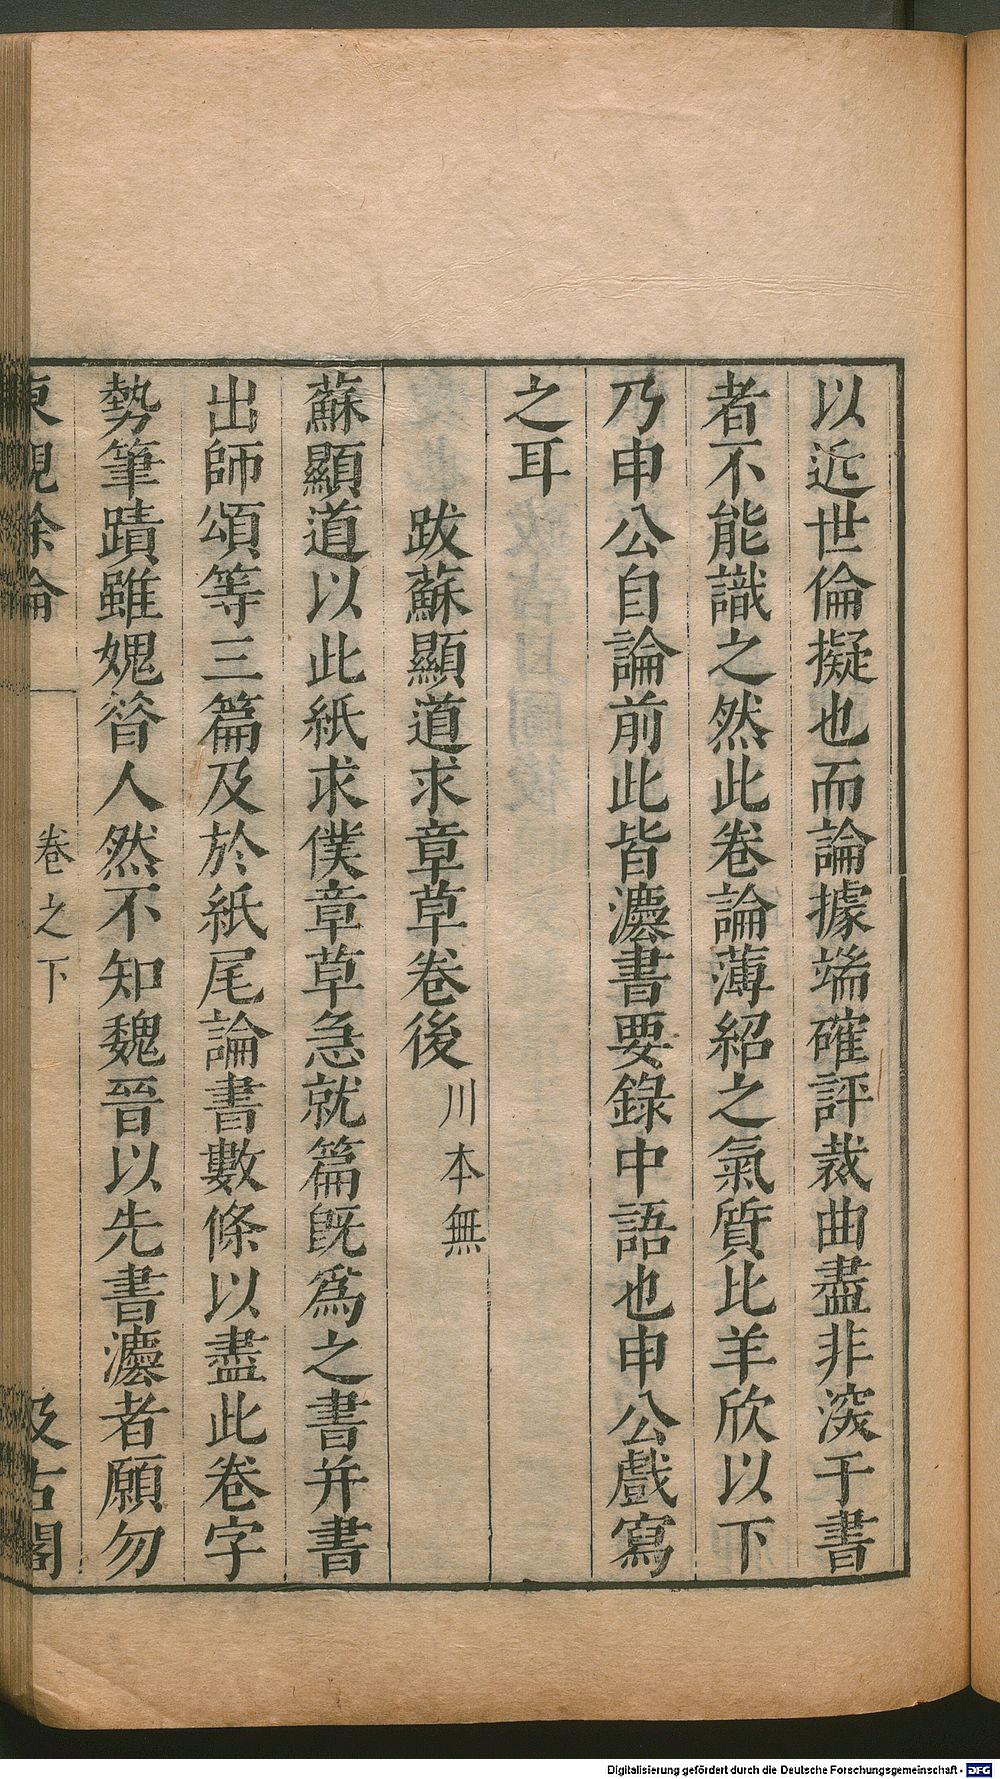 以近世倫擬也而論據端確評裁曲盡非深于書
者不能識之然此卷論薄紹之氣質比羊欣以下
乃申公自論前此皆灋書要錄中語也申公戲寫
之耳
跋蘇顯道求章草卷後川本無
蘇顯道以此紙求僕章草急就篇旣爲之書并書
出師頌等三篇及於紙尾論書數條以盡此卷字
勢筆蹟雖媿晉人然不知魏晉以先書灋者願勿
東觀餘論 卷之下 汲古閣
Digitalisierung gefördert durch die Deutsche Forschungsgemeinschaft - DFG